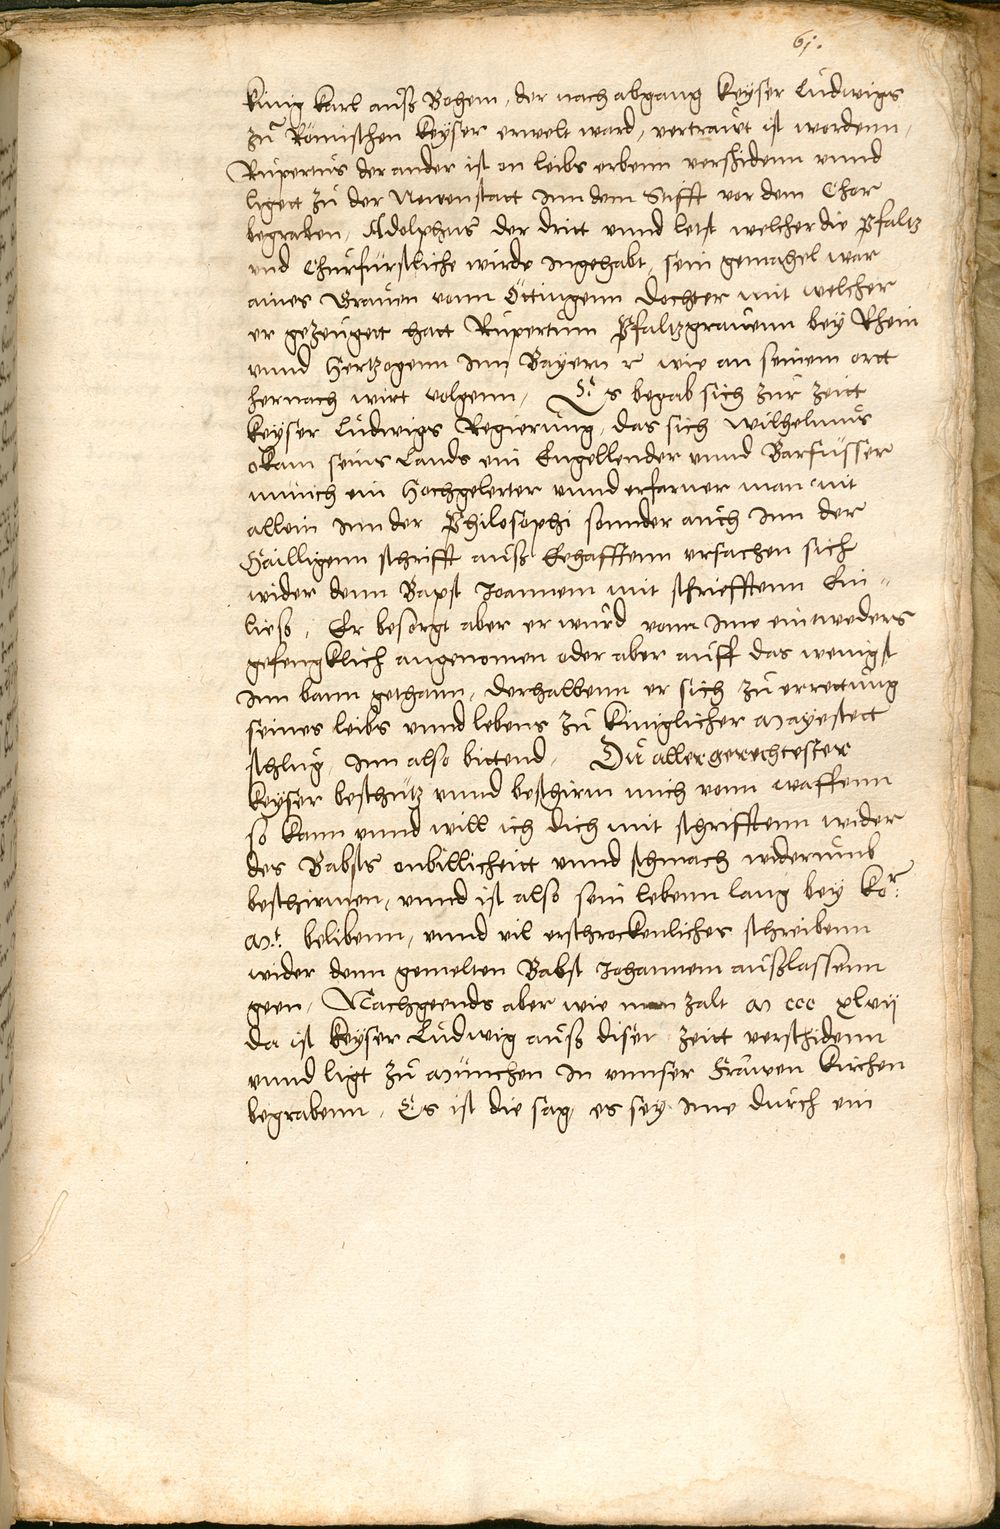 61.
König Karl auß Bohem, der nach abgang Keyser Ludwigs
zu Römischen Keyser erwelt ward, vertrauwt ist wordenn,
Rupertus der ander ist on leibs erbenn verschidenn vnnd
ligett zu der Newenstatt Inn dem Stifft vor dem Chor
begraben, Adolphus der dritt vnnd letst welcher die Pfaltz
vnd Churfürstliche wirde Ingehabt, sein gemahel war
aines Grauen vonn Öttingenn dochter mit welcher
er gezeugett hatt Rupertum Pfaltzgrauenn bey Rhein
vnnd Hertzogenn Inn Bayern r wie an seinem ortt
hernach wirt volgenn, Es begab sich zur zeitt
Keyser Ludwigs Regierung, das sich Wilhelmus
okam seins Lands ein Engellender vnnd Barfüsser
münich ein Hochgelerter vnnd erfarner man nit
allein Inn der Philosophi sonnder auch Inn der
Hailligenn schrifft auß Ehafftenn vrsachen sich
wider denn Bapst Joannem mit schriefftenn Ein-
ließ, Er besorgt aber er wurd vonn Ime eintweders
gefengklich angenomen oder aber auff das wenigst
Inn bann gethann, derhalbenn er sich zu errettung
seines leibs vnnd lebens zu Küniglicher Mayestett
schlug, Inn also bittend, Du allergerechtester
Keyser beschutz vnnd beschirm mich vonn waffenn
so kann vnnd will ich dich mit schrifftenn wider
des Babsts onbillicheitt vnnd schmach widerumb
beschirmen, vnnd ist also sein lebenn lang bey Kor.
Mt. belibenn, vnnd vil erschrockenliches schreibenn
wider denn gemelten Babst Johannem außlassenn
geen, Nachgeends aber wie man zalt M ccc xlvij
da ist Keyser Ludwig auß diser zeitt verschidenn
vnnd ligt zu München In vnnser Frawen Kirchen
begrabenn, Es ist die sag, es sey Ime durch ein